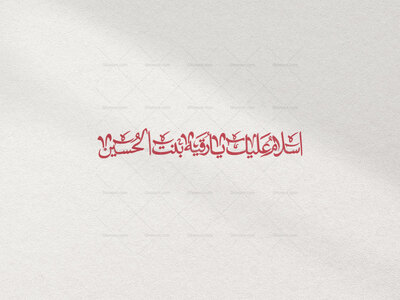 اسلامُ عَلیک یا رُقَیه بنْت الحُسین